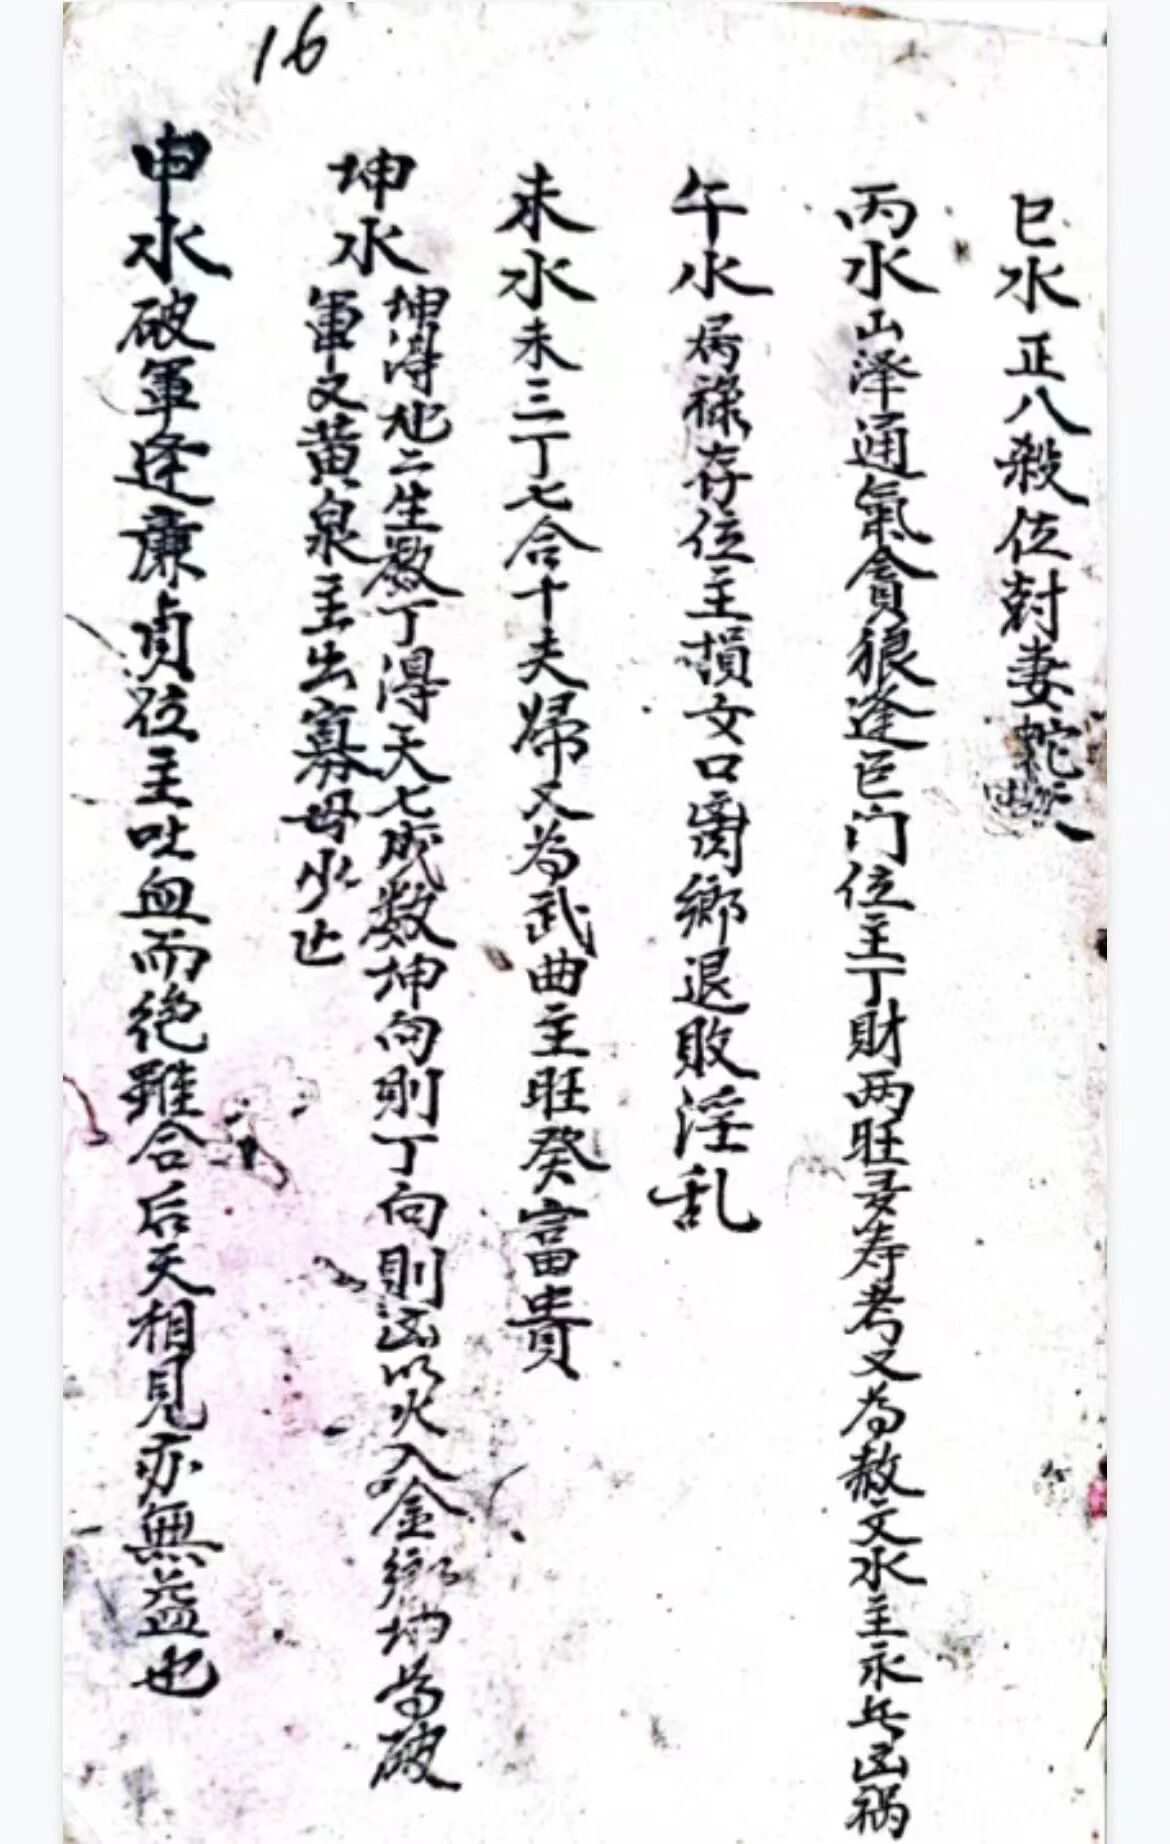 16
巳水正八殺位尅妻蛇
丙水山泽通氣貪狼逢巨门位主丁財两旺寿考又为赦文水主永兵凶祸
午水为禄存位主損女口离鄉退敗淫乱
未水未三丁七合十夫婦又为武曲主旺癸富貴
坤水坤淂地二生数丁淂天七成数坤向則丁向則凶以火入金鄉坤为破
軍又黄泉主出寡母少亡
申水破軍逢廉貞位主吐血而绝雖合后天相見亦無益也